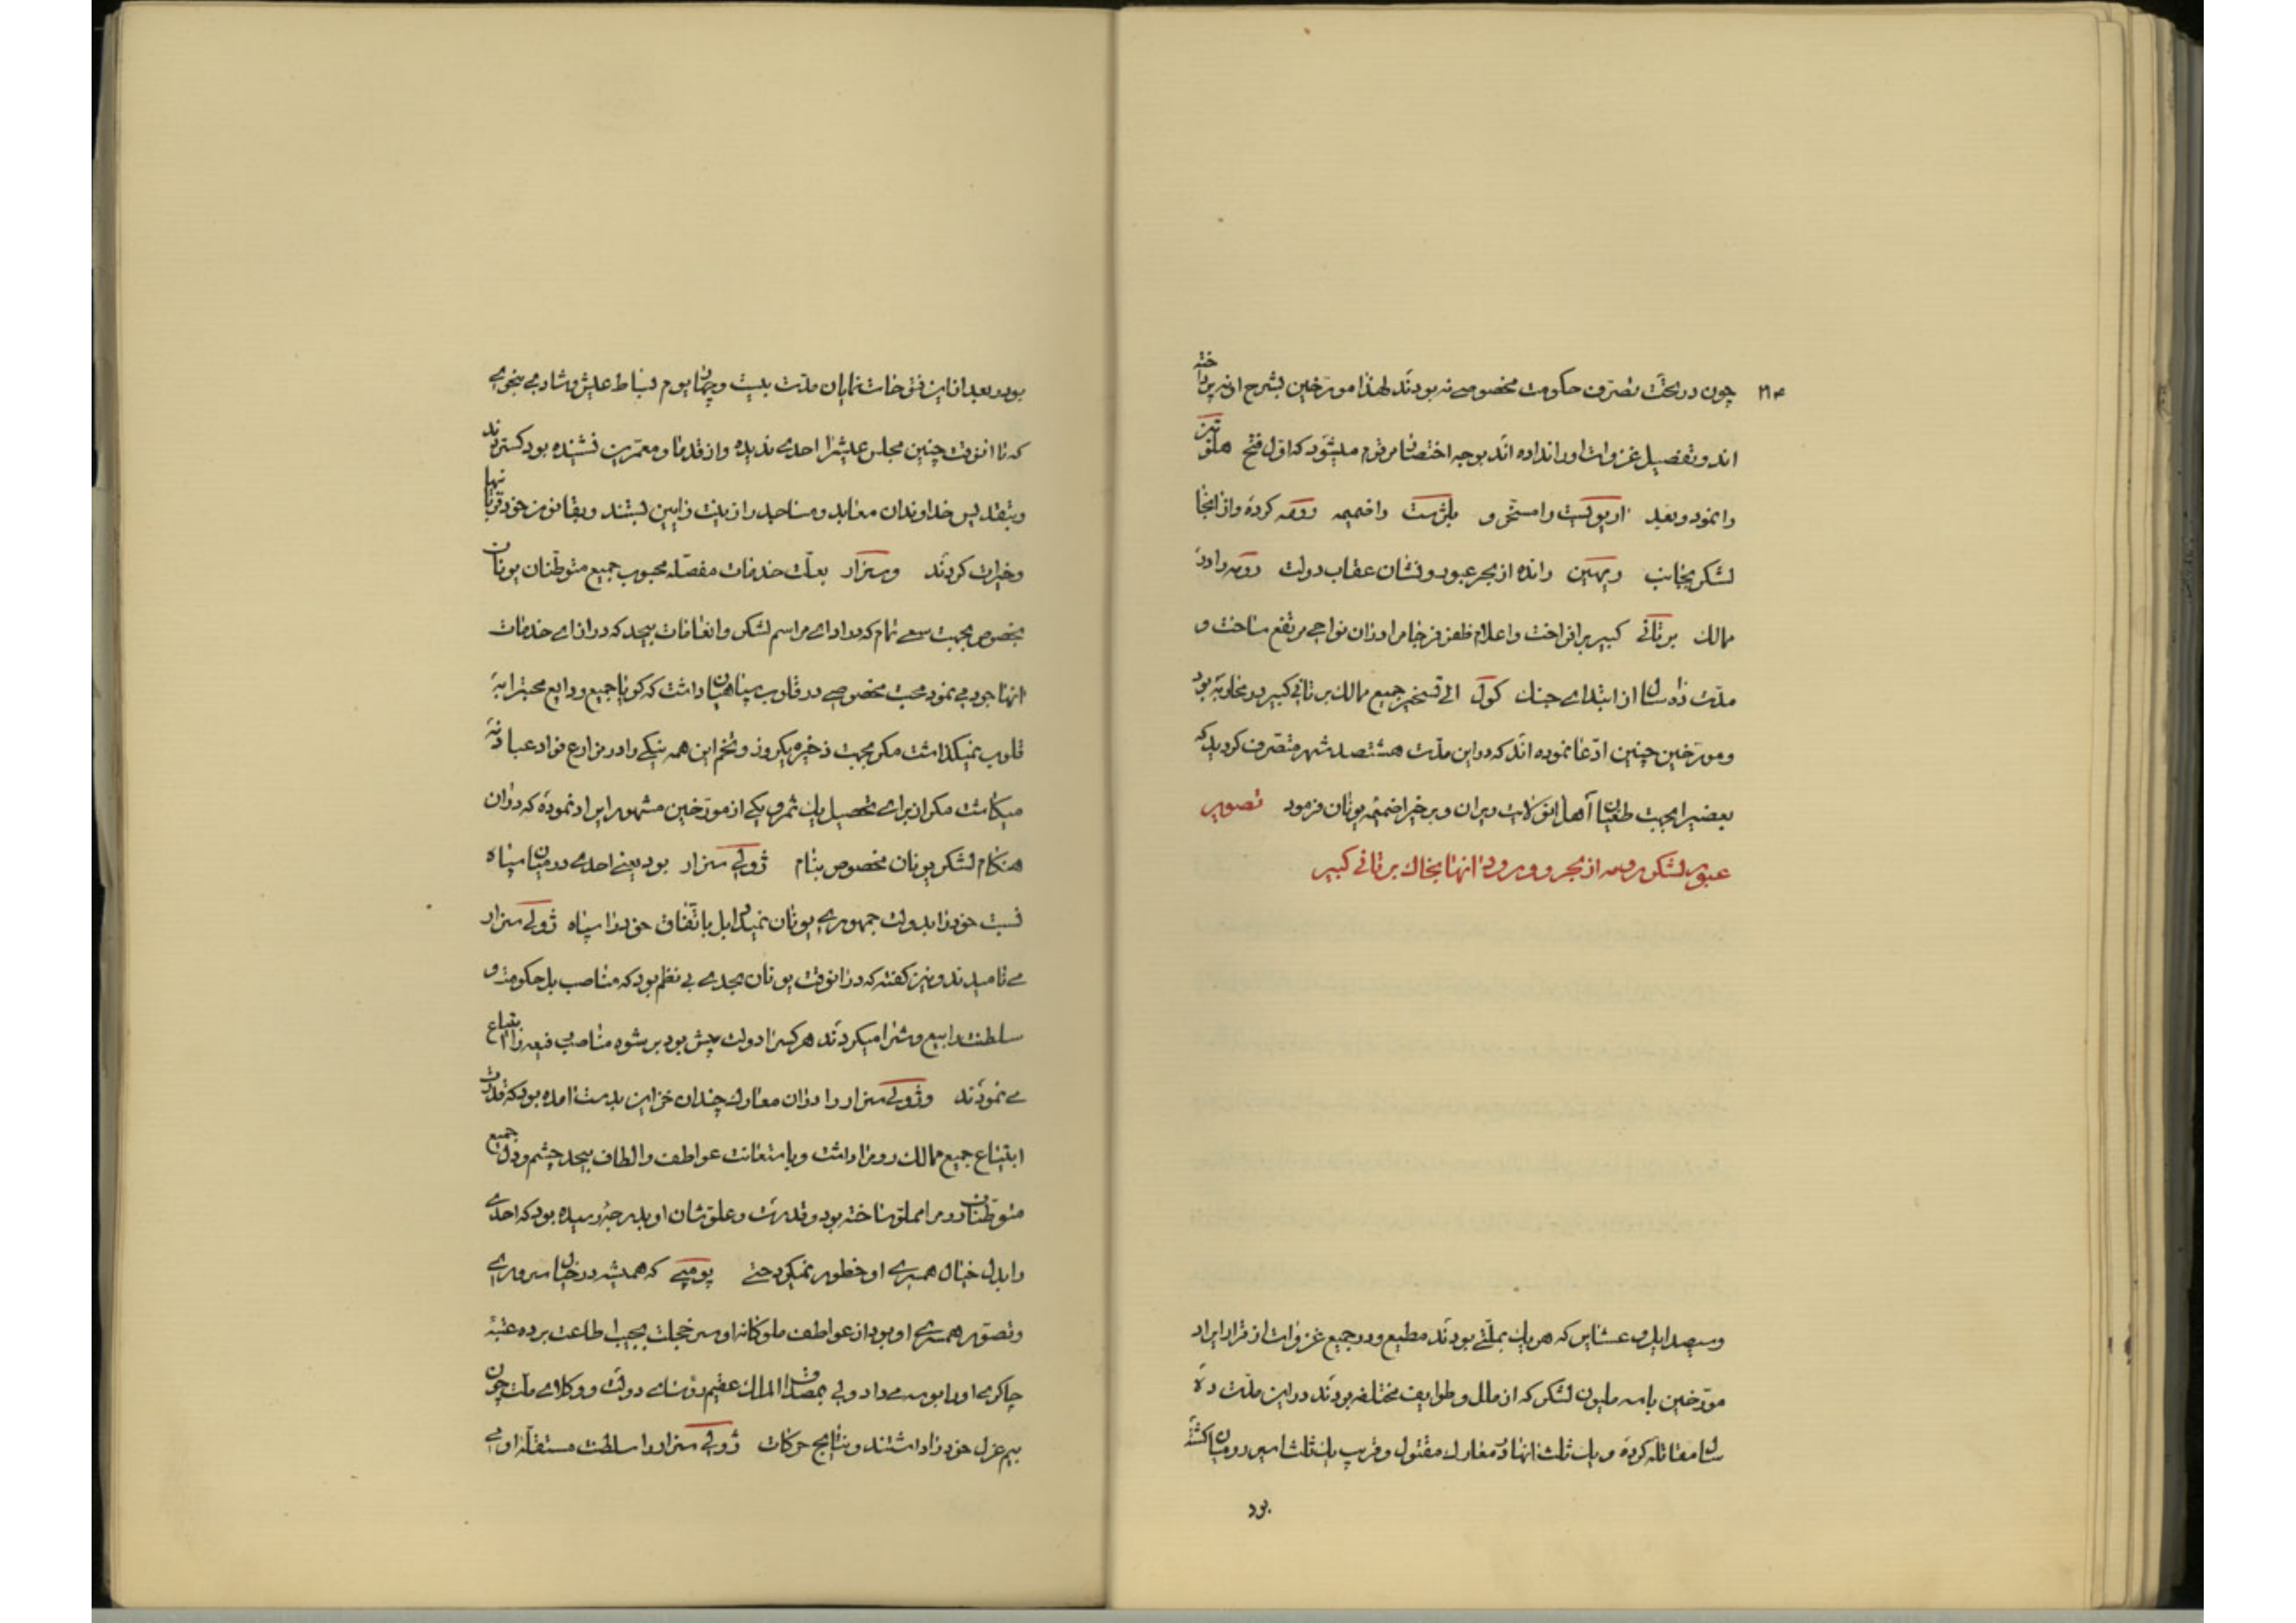 ۲۱۳
چون در تحت تصرف حکومت مخصوصی نه بودند لهذا مورخین بشرح او نه پرداخته
اند و تفصیل غزوات او را نداده اند بوجه اختصار مرقوم میشود که اول فتح
را نمود و بعد را مسخر و را ضمیمه رومه کرده و از انجا
لشکر بجانب رانده از بحر عبور و نشان عقاب دولت رومه را در
ممالک برتانی کبیر بر افراخت و اعلام ظفر فرجام را در ان نواحی مرتفع ساخت و
مدت ده سال از ابتدای جنک کول الی تسخیر جمیع ممالک برتانی کبیر در محاربه بود
و مورخین چنین ادعا نموده اند که در این مدت هشتصد شهر متصرف کردید که
بعضیرا بجهت طغیان اهل انولایت ویران و برخیرا ضمیمه یونان فرمود تصویر
عبور لشکر رومه از بحر و ورود انها بخاک برتانی کبیر
و سیصد ایل و عشایر که هر یک بملتی بودند مطیع و در جمیع غزوات از قرار ایراد
مورخین با سه ملیون لشکر که از ملل و طوایف مختلفه بودند در این مدت ده
سال مقاتله کرده و یک ثلث انها در معارک مقتول و قریب یک ثلث اسیر رومیان کشته
بود
بود و بعد از این فتوحات نمایان مدت بیست و چهار یوم بساط عیش و شادمی بنحوی
که تا انوقت چنین مجلس عیشرا احدی ندیده و از قدما و معمرین نشنیده بود کستردند
و بتقدیس خداوندان معابد و مساجد را زینت و ایین بستند و بقانون خود قربانیها
و خیرات کردند و سزار بعلت خدمات مفصله محبوب جمیع متوطنان یونان
بخصوص بجهت سعی تمام که در ادای مراسم لشکر و انعامات بیحد که در ازای خدمات
انها جود می نمود محبت مخصوصی در قلوب سپاهیان داشت که کویا جمیع ودایع محبترا به
قلوب نمیکذاشت مکر بجهت ذخیره یکروز و تخم این همه نیکی را در مزارع فواد عباد نه
میکاشت مکر از برای تحصیل یک ثمر و یکی از مورخین مشهور ایراد نموده که در ان
هنکام لشکر یونان مخصوص بنام ژولی سزار بود یعنی احدی در میان سپاه
نسبت خود را بدولت جمهوری یونان نمیداد بل باتفاق خود را سپاه ژولی سزار
می نامیدند و نیز کفته که در انوقت یونان بحدی بی نظم بود که مناصب بل حکومت و
سلطنت را بیع و شرا میکردند هر کسرا دولت بیش بود برشوه مناصب رفیعه را ابتیاع
می نمودند و ژولی سزار را در ان معارک چندان خزاین بدست امده بود که قدرت
ابتیاع جمیع ممالک رومرا داشت و با استعانت عواطف و الطاف بیحد چشم و دل جمیع
متوطنان رومرا مملو ساخته بود و قدرت و علو شان او بدرجه رسیده بود که احدی
را بدل خیال همسری او خطور نمیکرد حتی پومپی که همیشه در خیال سروری
و تصور همسری او بود از عواطف ملوکانه او سر خجلت بجیب اطاعت برده عتبه
چاکری او را بوسه می داد ولی بمصداق الملک عقیم رؤسای دولت و وکلای ملت چون
بیم عزل خود را داشتند و نتایج حرکات ژولی سزار را سلطنت مستقله او می